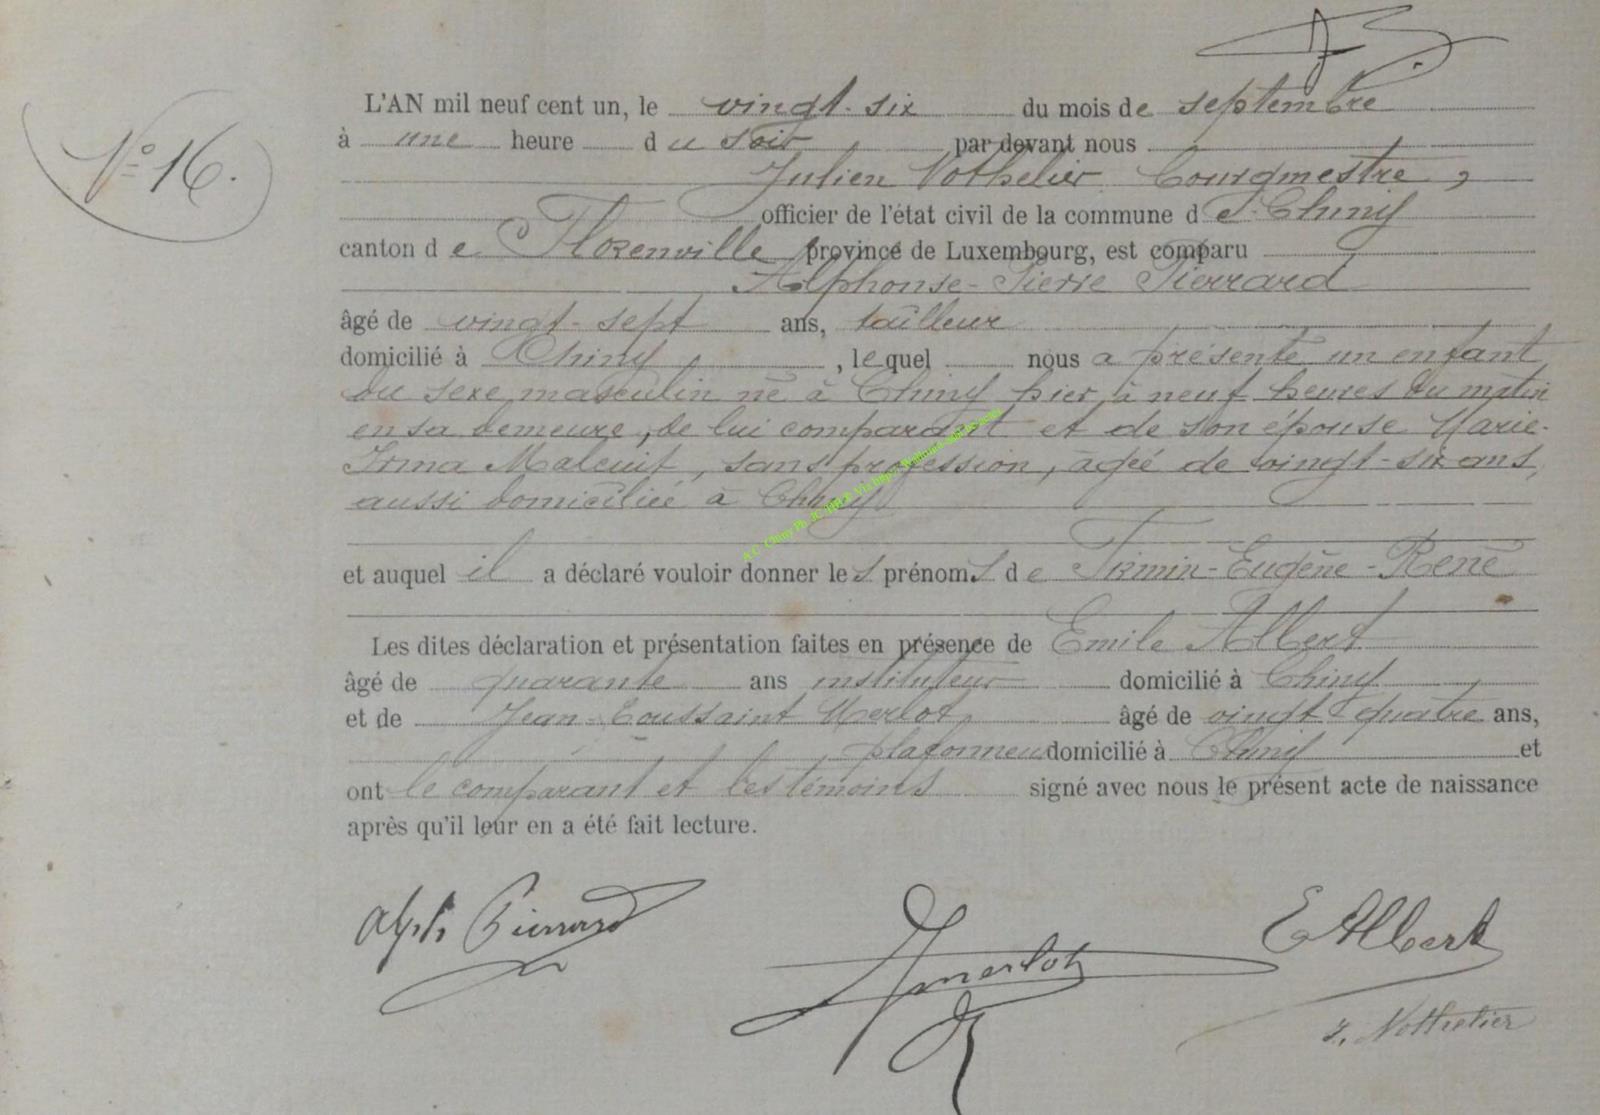 N° 16.
L'AN mil neuf cent un, le vingt-six du mois de septembre
à une heure du soir par devant nous
Julien Nothelier, bourgmestre,
officier de l'état civil de la commune de Chiny
canton de Florenville province de Luxembourg, est comparu
Alphonse-Pierre Pierrard
âgé de vingt-sept ans, tailleur
domicilié à Chiny, lequel nous a présenté un enfant
du sexe masculin né à Chiny hier à neuf heures du matin
en sa demeure, de lui comparant et de son épouse Marie-
Irma Malcuit, sans profession, âgée de vingt-six ans,
aussi domiciliée à Chiny
et auquel il a déclaré vouloir donner les prénoms de Firmin-Eugène-René
Les dites déclaration et présentation faites en présence de Emile Albert
âgé de quarante ans instituteur domicilié à Chiny
et de Jean-Toussaint Merlot, âgé de vingt quatre ans,
plafonneur domicilié à Chiny et
ont le comparant et les témoins signé avec nous le présent acte de naissance
après qu'il leur en a été fait lecture.
Alph. Pierrard
Jmerlot
E Albert
J. Nothelier